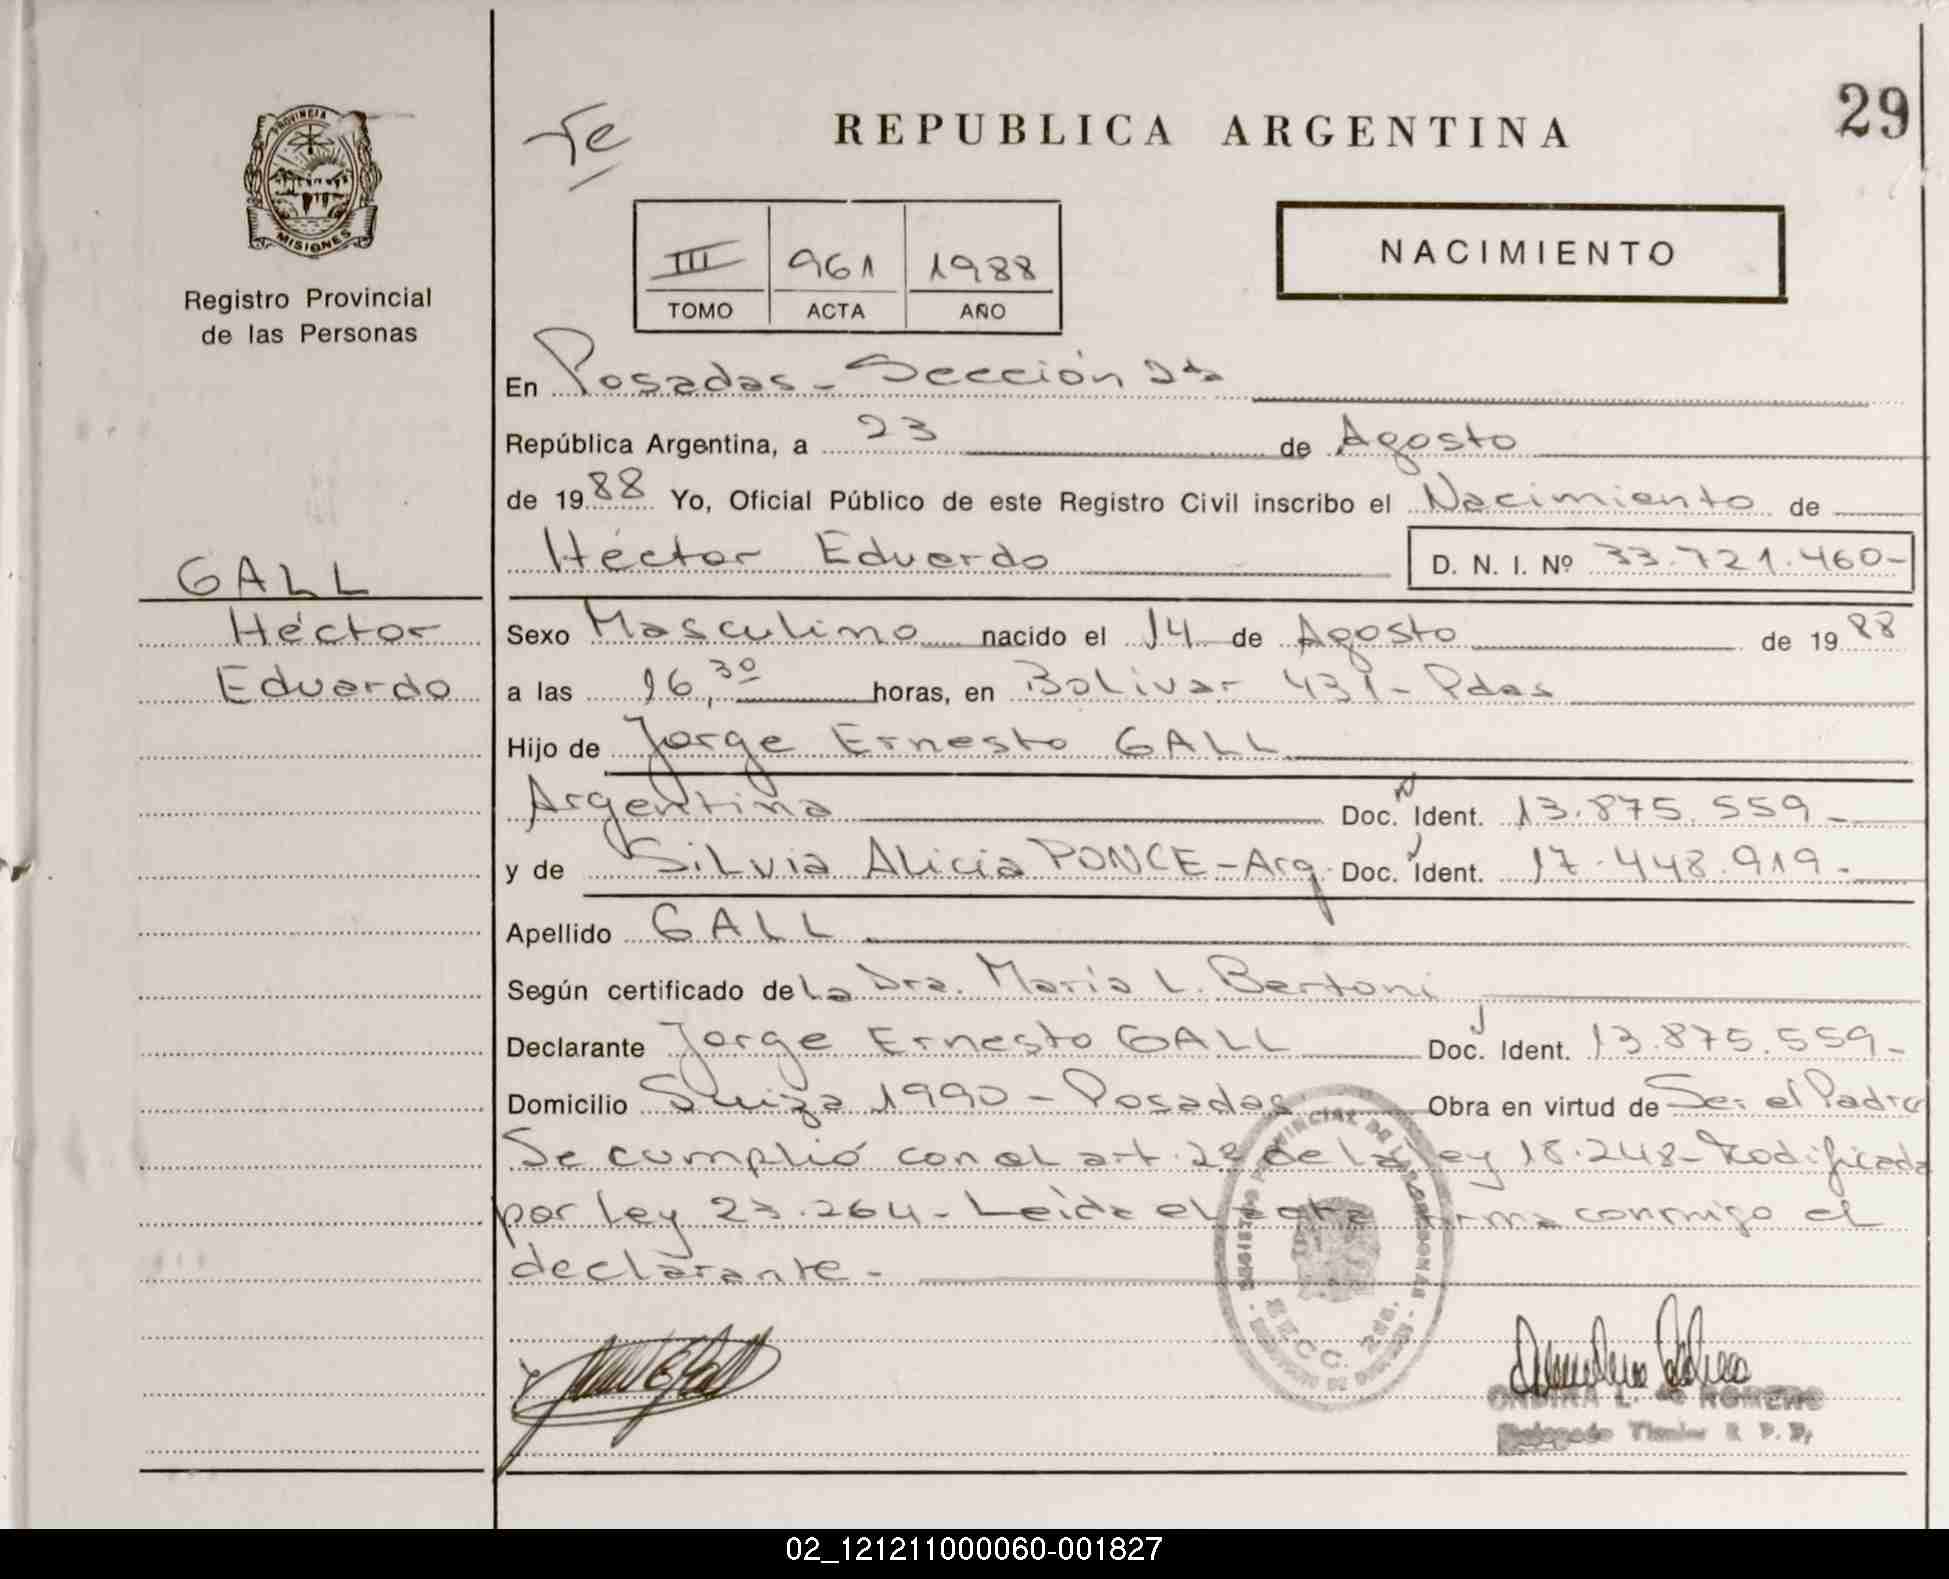 29
REPUBLICA ARGENTINA
PROVINCIA
MISIONES
Registro Provincial
de las Personas
III 961 1988
TOMO ACTA AÑO
NACIMIENTO
En Posadas - Sección 2da
República Argentina, a 23 de Agosto
de 1988 Yo, Oficial Público de este Registro Civil inscribo el Nacimiento de
Héctor Eduardo D. N. I. Nº 33.721.460-
GALL
Héctor
Eduardo
Sexo Masculino nacido el 14 de Agosto de 1988
a las 16,30 horas, en Bolivar 431 - Pdas
Hijo de Jorge Ernesto GALL
Argentina Doc. Ident. 13.875.559-
y de Silvia Alicia PONCE - Arg. Doc. Ident. 17.448.919-
Apellido GALL
Según certificado de la Dra. María L. Bertoni
Declarante Jorge Ernesto GALL Doc. Ident. 13.875.559-
Domicilio Suiza 1990 - Posadas Obra en virtud de Ser el Padre
Se cumplió con el art. 2º de la Ley 18.248 - Modificada
por Ley 23.264 - Leída el acta firma conmigo el
declarante -
SECC. 2da.
ONDINA L. de ROMERO
Delegado Titular R. P. P.
02_121211000060-001827